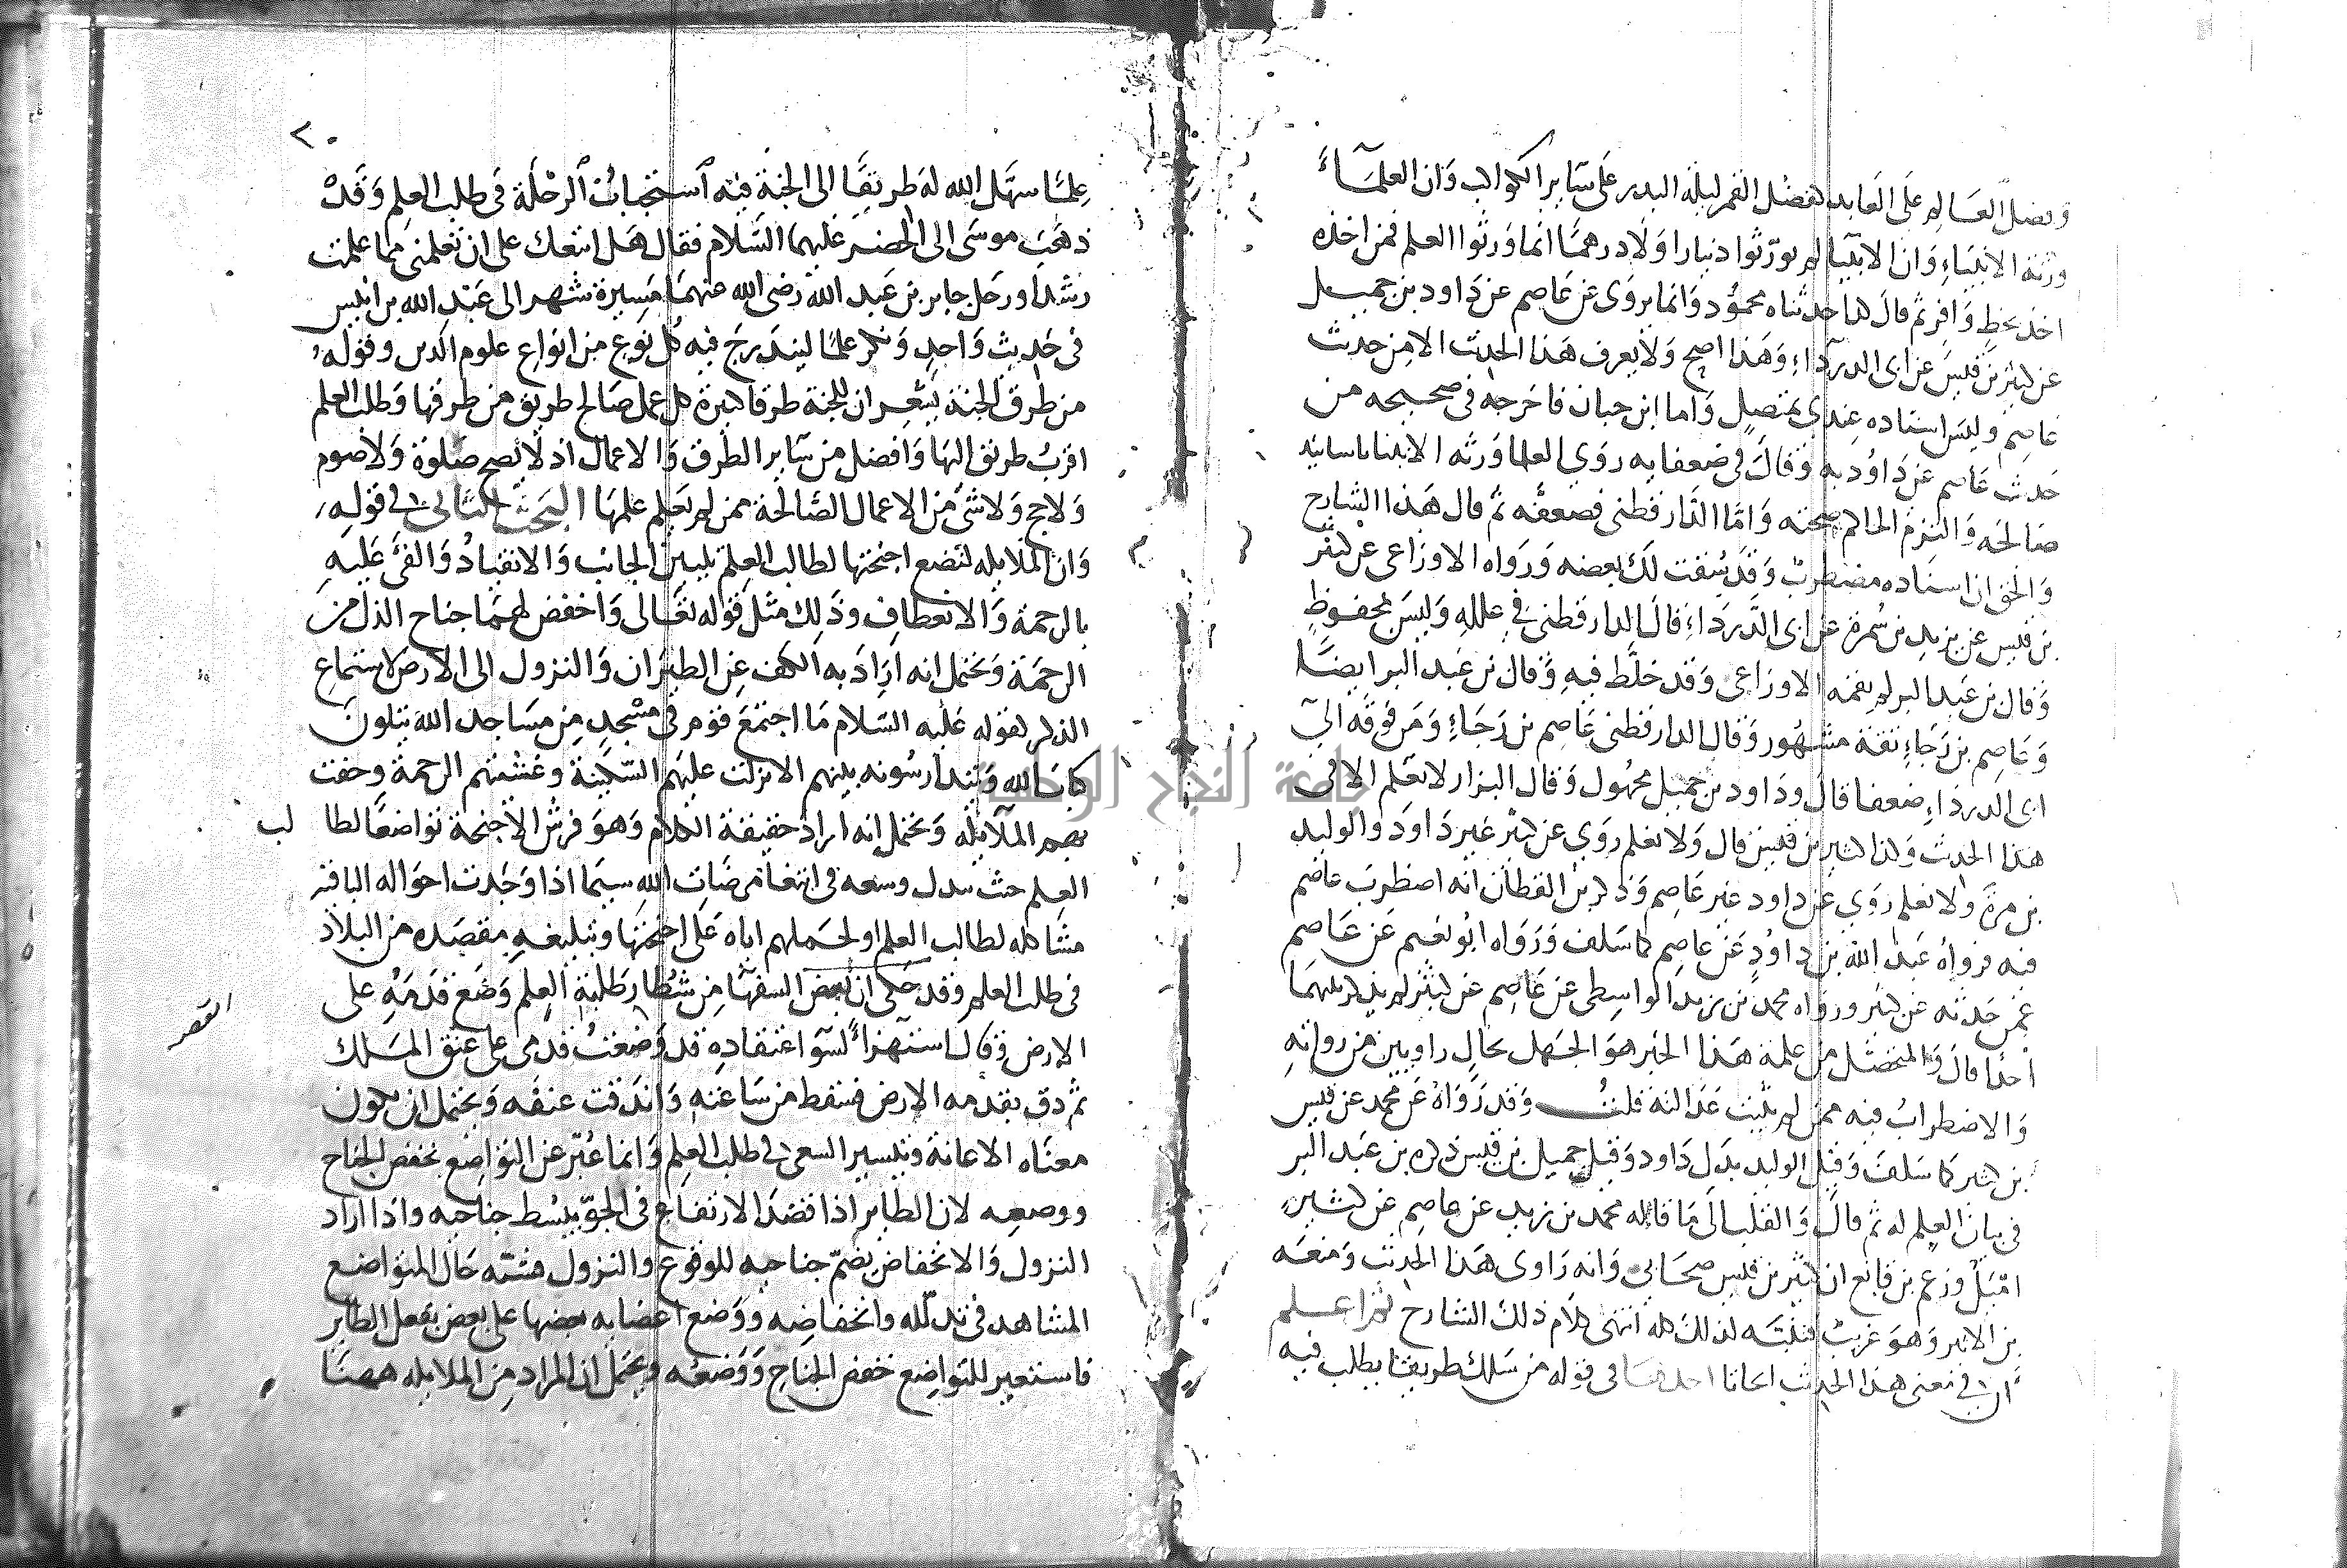 وفضل العالم على العابد كفضل القمر ليلة البدر على سائر الكواكب وان العلماء
ورثة الانبياء وان الانبيا لم يورثوا دينارا ولا درهما انما ورثوا العلم فمن اخذه
اخذ بحظ وافر ثم قال كذا حدثناه محمود وانما يروى عن عاصم عن داود بن جميل
عن كثير بن قيس عن ابى الدرداء وهذا اصح ولا يعرف هذا الحديث الا من حديث
عاصم وليس اسناده عندى بمتصل واما ابن حبان فاخرجه فى صحيحه من
حديث عاصم عن داود به وقال فى ضعفايه روي العلما ورثه الانبيا باسانيد
صالحه والتزم الحاكم صحته واما الدارقطنى فضعفه ثم قال هذا الشارح
والحق ان اسناده مضطرب وقد بينت لك بعضه ورواه الاوزاعى عن كثير
بن قيس عن يزيد بن سمرة عن ابى الدرداء قال الدارقطنى في علله وليس بمحفوظ
وقال بن عبد البر لم يقمه الاوزاعى وقد خلط فيه وقال بن عبد البر ايضا
وعاصم بن رجاء ثقة مشهور وقال الدارقطنى عاصم بن رجاء ومن فوقه الى
ابى الدرداء ضعفا قال وداود بن جميل مجهول وقال البزار لا نعلم الا فى
هذا الحديث وكذا كثير بن قيس قال ولا نعلم روى عن كثير غير داود والوليد
بن مرة ولا نعلم روي عن داود غير عاصم وذكر بن القطان انه اضطرب عاصم
فيه فرواه عبد الله بن داود عن عاصم كما سلف ورواه ابو نعيم عن عاصم
عمن حدثه عن كثير ورواه محمد بن يزيد الواسطى عن عاصم عن كثير لم يذكر بينهما
احدا قال والمتحصل من علة هذا الخبر هو الجهل بحال راويين من رواته
والاضطراب فيه ممن لم يثبت عدالته قلت وقد رواه عن محمد عن قيس
بن كثير كما سلف وقيل الوليد بدل داود وقيل جميل بن قيس ذكره بن عبد البر
فى بيان العلم له ثم قال والقلب الى ما قاله محمد بن يزيد عن عاصم عن كثير
اميل وزعم بن قانع ان كثير بن قيس صحابى وانه راوى هذا الحديث ومنعه
بن الاثير وهو غريب فتنبه لذلك كله انتهى كلام ذلك الشارح ثم اعلم
ان فى معنى هذا الحديث ابحاثا احدها فى قوله من سلك طريقا يطلب فيه
٢٠
علما سهل الله له طريقا الى الجنة فيه استحباب الرحلة فى طلب العلم وقد
ذهب موسى الى الخضر عليهما السلام فقال هل اتبعك على ان تعلمنى مما علمت
رشدا ورحل جابر بن عبد الله رضى الله عنهما مسيرة شهر الى عبد الله بن انيس
فى حديث واحد ونكر علما ليندرج فيه كل نوع من انواع علوم الدين وقوله
من طرق الجنة يشعر ان للجنة طرقا كثيرة كل عمل صالح طريق من طرقها وطلب العلم
اقرب طريق اليها وافضل من سائر الطرق والاعمال اذ لا يصح صلوة ولا صوم
ولا حج ولا شئ من الاعمال الصالحة ممن لم يعلم علمها البحث الثانى فى قوله
وان الملايكه لتضع اجنحتها لطالب العلم تليين الجانب والانقياد والفئ عليه
بالرحمة والانعطاف وذلك مثل قوله تعالى واخفض لهما جناح الذل من
الرحمة ويحتمل انه اراد به الكف عن الطيران والنزول الى الارض لاستماع
الذكر لقوله عليه السلام ما اجتمع قوم فى مسجد من مساجد الله يتلون
كتاب الله ويتدارسونه بينهم الا نزلت عليهم السكينة وغشيتهم الرحمة وحفت
بهم الملايكه ويحتمل انه اراد حقيقة الكلام وهو فرش الاجنحة تواضعا لطا لب
العلم حيث بذل وسعه فى ابتغا مرضات الله سيما اذا وجدت احواله الباقيه
مشاكله لطالب العلم او لحملهم اياه على اجنحتها وتبليغه مقصده من البلاد
فى طلب العلم وقد حكى ان بعض السفها من شطار طلبة العلم وضع قدمه على
الارض وقال استهزاء لسو اعتقاده قد وضعت قدمى على عنق الملك
ثم دق بقدمه الارض فسقط من ساعته واندقت عنقه ويحتمل ان يكون
معناه الاعانة وتيسير السعى فى طلب العلم وانما عبر عن التواضع بخفض الجناح
ووضعه لان الطاير اذا قصد الارتفاع فى الجو يبسط جناحيه واذا اراد
النزول والانخفاض يضم جناحيه للوقوع والنزول فشبه حال المتواضع
المشاهد فى تذلله وانخفاضه ووضع اعضايه بعضها على بعض بفعل الطاير
فاستعير للتواضع خفض الجناح ووضعه ويحتمل ان المراد من الملايكه ههنا
جامعة النجاح الوطنية